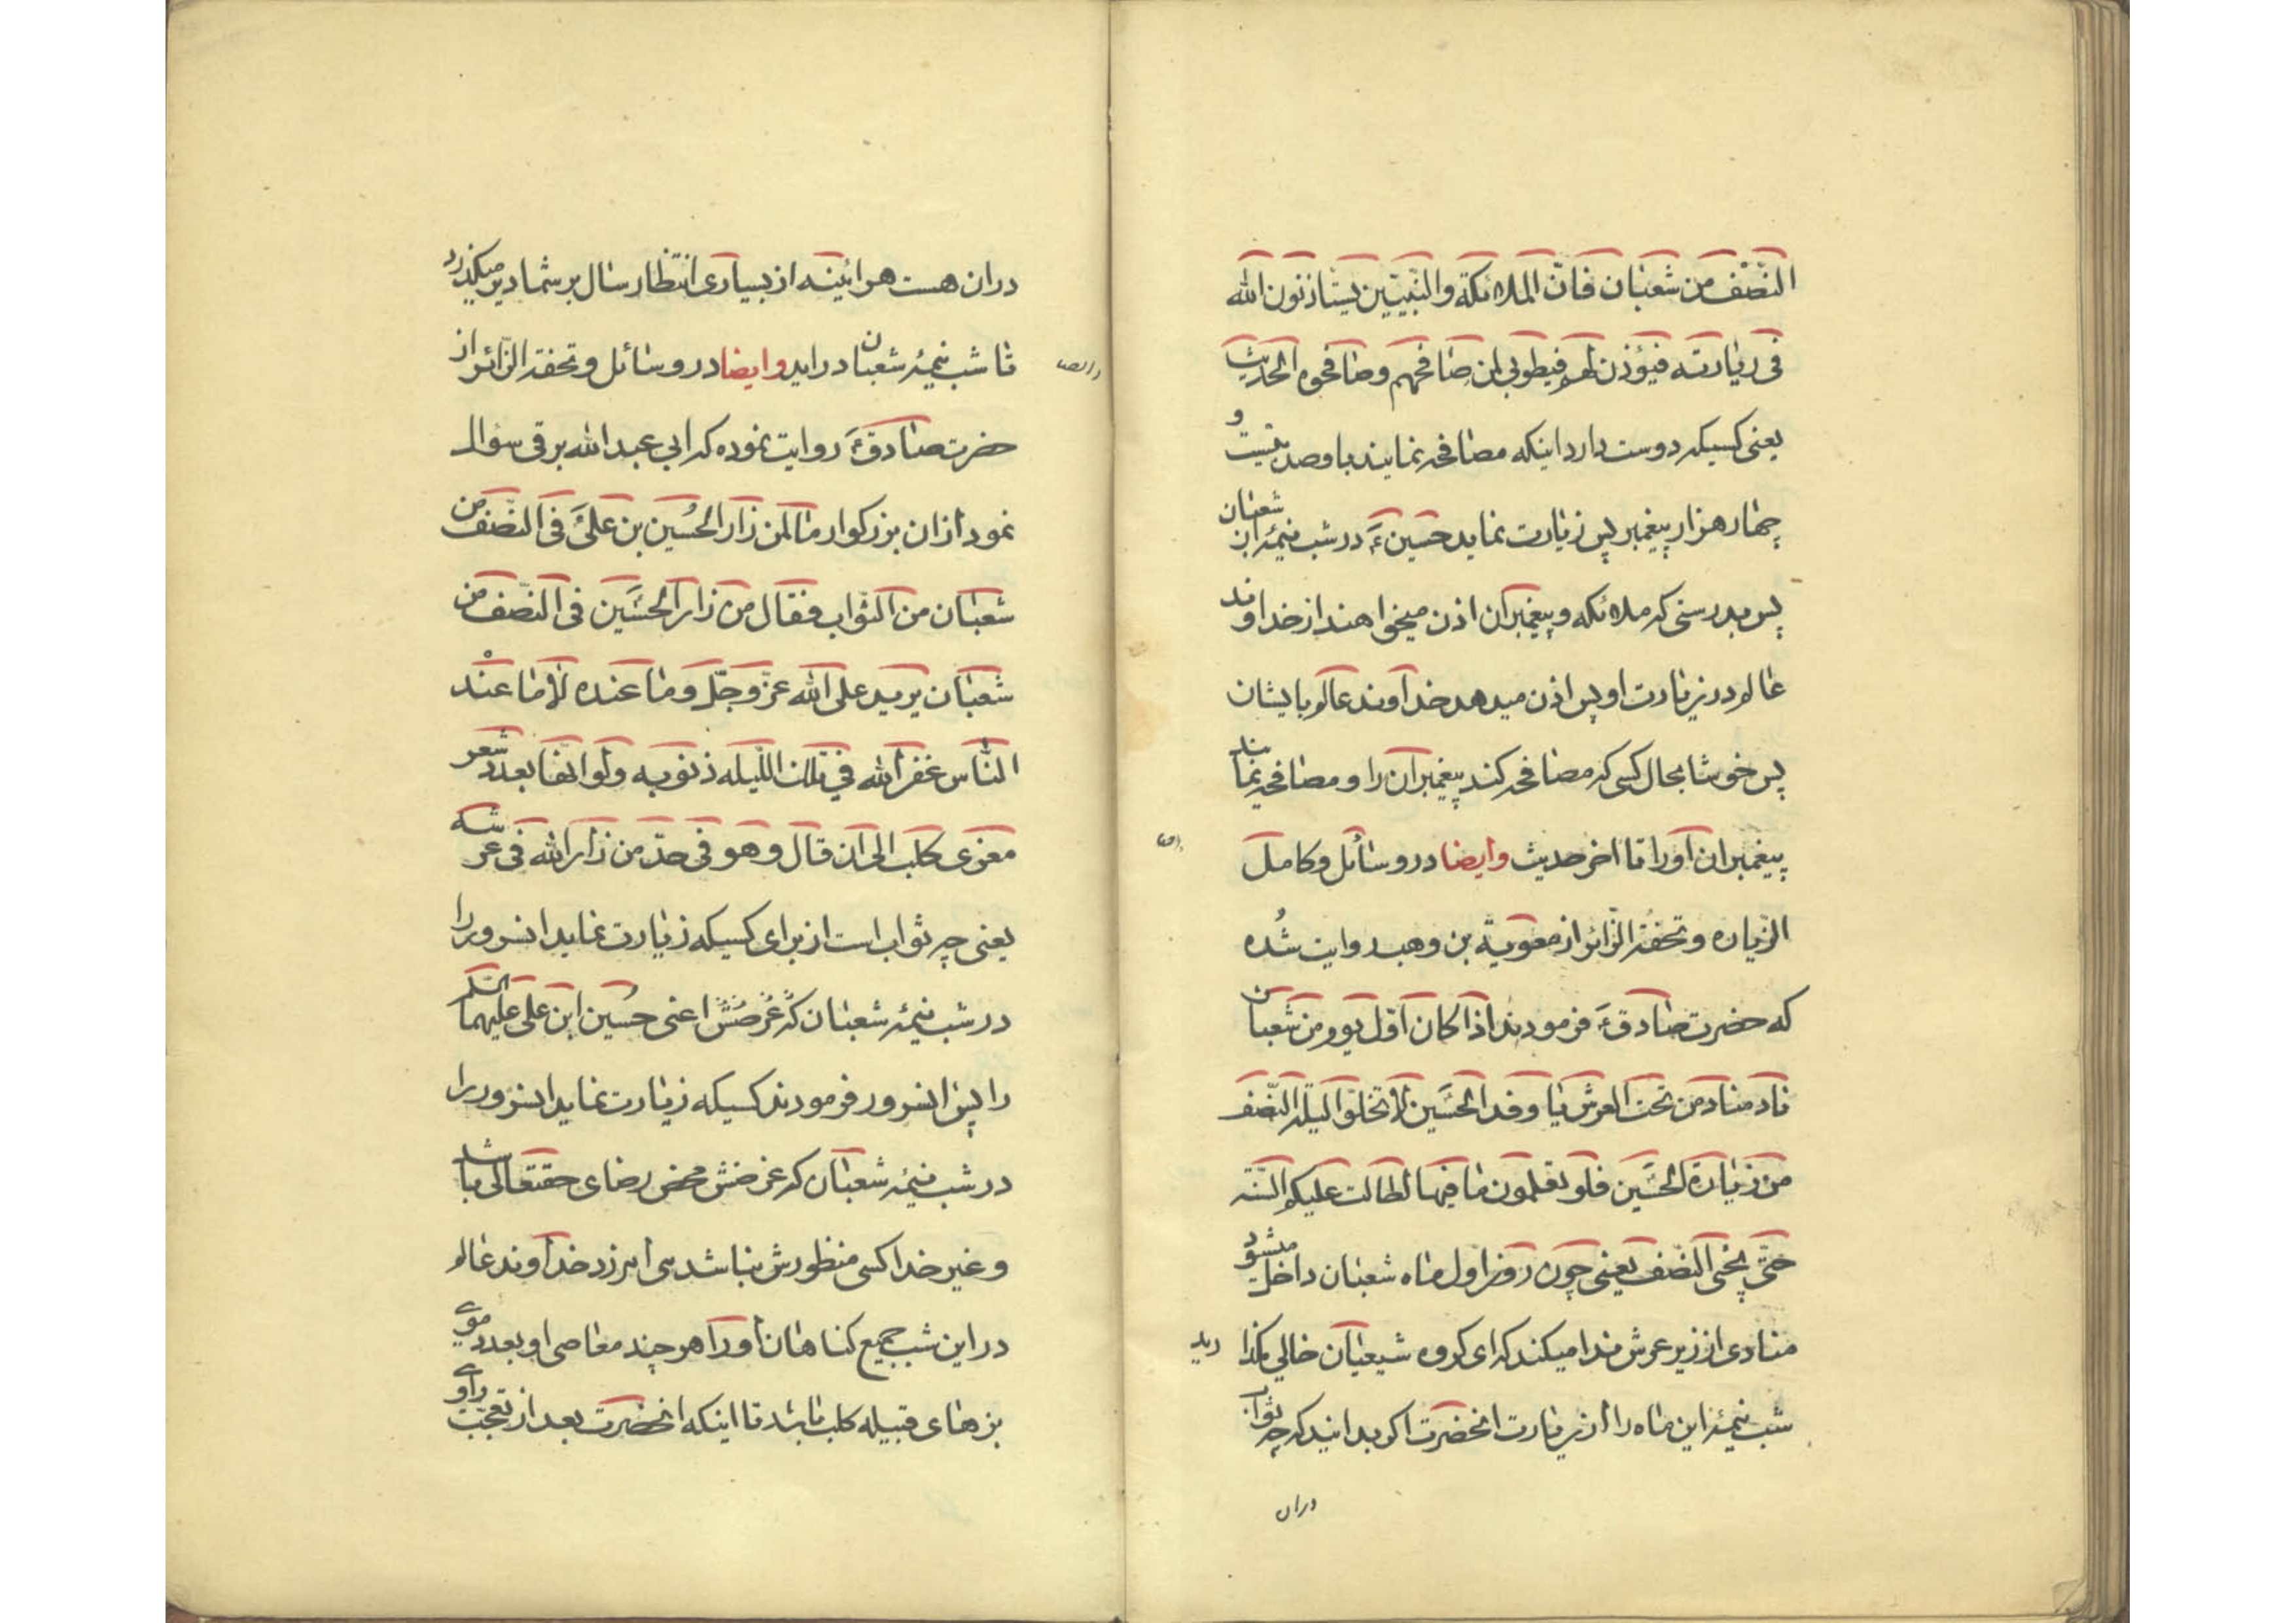 النّصف من شعبان فانّ الملائكة والنّبيّين يستاذنون الله
فی زیارته فیؤذن لهم فیطوبی لمن صافحهم وصافحوه الحدیث
یعنی کسیکه دوست دارد اینکه مصافحه نمایند با او صد و بیست و
چهار هزار پیغمبر پس زیارت نماید حسین ع در شب نیمۀ از شعبان
پس بدرستی که ملائکه و پیغمبران اذن میخواهند از خداوند
عالم در زیارت او پس اذن میدهد خداوند عالم بایشان
پس خوشا بحال کسی که مصافحه کند پیغمبران را و مصافحه نمایند
پیغمبران او را تا اخر حدیث وایضا در وسائل و کامل
الزیاره و تحفة الزّائر از معویة بن وهب روایت شُده
که حضرت صادق ع فرمودند اذا کان اوّل یوم من شعبان
ناد مناد من تحت العرش یا وفد الحسین لا تخلوا لیلة النّصف
من زیارة الحسین فلو تعلمون ما فیها لطالت علیکم السّنه
حتّی یجئ النّصف یعنی چون روز اول ماه شعبان داخل میشود
منادی از زیر عرش ندا میکند که ای گروه شیعیان خالی مگذا رید
شب نیمۀ این ماه را از زیارت انحضرت اگر بدانید که چه ثواب
دران
دران هست هراینه از بسیاری انتظار سال بر شما دیر میگذرد
تا شب نیمۀ شعبان درایر وایضا در وسائل و تحفة الزّائر از
حضرت صادق ع روایت نموده که ابی عبد الله برقی سؤال
نمود ازان بزرکوار ما لمن زار الحُسین بن علی ع فی النّصف من
شعبان من الثواب فقال من زار الحسین فی النّصف من
شعبان یرید علی الله عزّ وجلّ وما عنده لا ما عنْد
النّاس غفر الله فی تلک اللّیله ذنوبه ولو انّها بعدد شعر
معزی کلب الی ان قال وهو فی حدّ من زار الله فی عرشه
یعنی چه ثواب است از برای کسیکه زیارت نماید انسرور را
در شب نیمۀ شعبان که غرضش اعنی حسین ابن علی علیهما السّلم
را پس انسرور فرمودند کسیکه زیارت نماید انسرور را
در شب نیمۀ شعبان که غرضش محض رضای حقتعالی باشد
و غیر خدا کسی منظورش نباشد می امرزد خداوند عالم
در این شب جمیع کناهان او را هر چند معاصی او بعدد موی
بزهای قبیله کلب باشد تا اینکه انحضرت بعد از تعجّب راوی